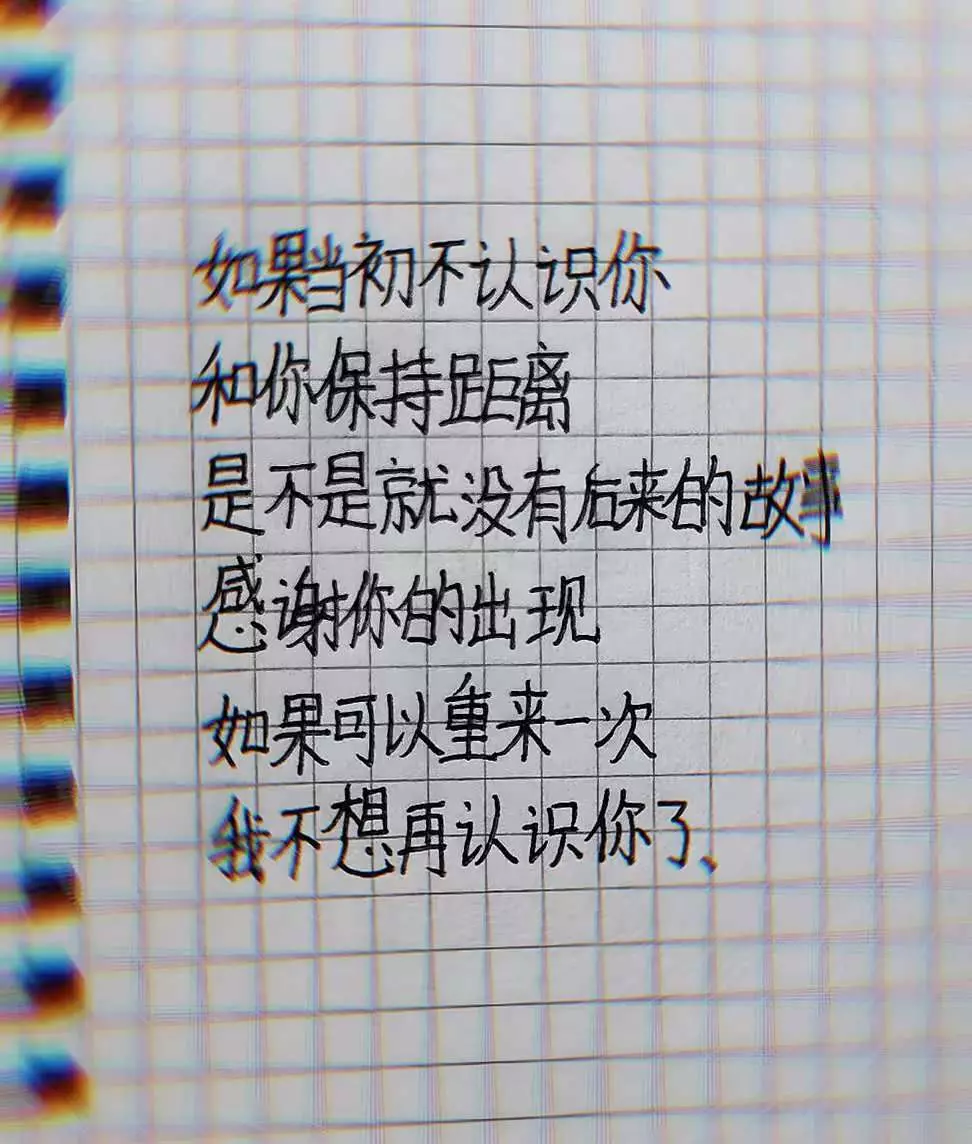 如果当初不认识你
和你保持距离
是不是就没有后来的故事
感谢你的出现
如果可以重来一次
我不想再认识你了、